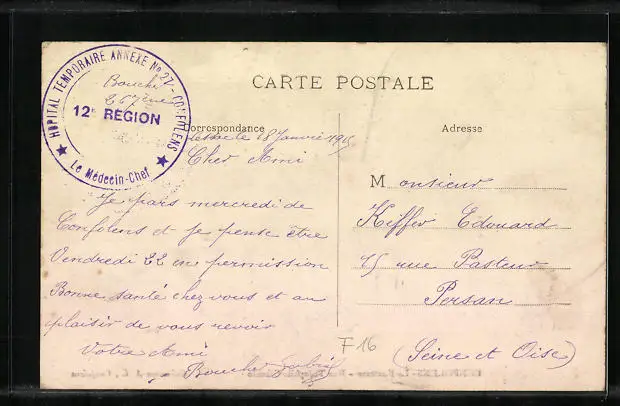 HÔPITAL TEMPORAIRE ANNEXE No 27 - CONFOLENS
12e RÉGION
Le Médecin-Chef
Bouché
CARTE POSTALE
Correspondance
Adresse
le 18 Janvier 191
Cher Ami
Je pars mercredi de
Confolens et je pense être
Vendredi 22 en permission
Bonne santé chez vous et au
plaisir de vous revoir
Votre Ami
Bouché
Monsieur
Kiffer Edouard
15 rue Pasteur
Persan
(Seine et Oise)
F16